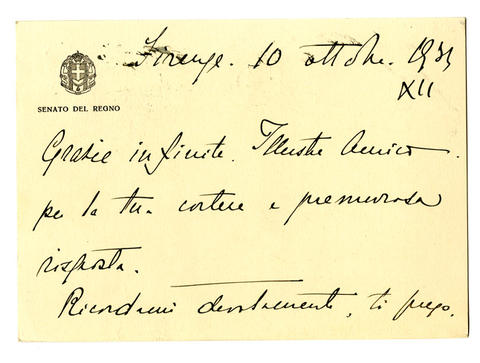 Firenze. 10 ottobre. 1934
XII
SENATO DEL REGNO
Grazie infinite. Illustre Amico.
per la tua cortese e premurosa
risposta.
Ricordami devotamente, ti prego.